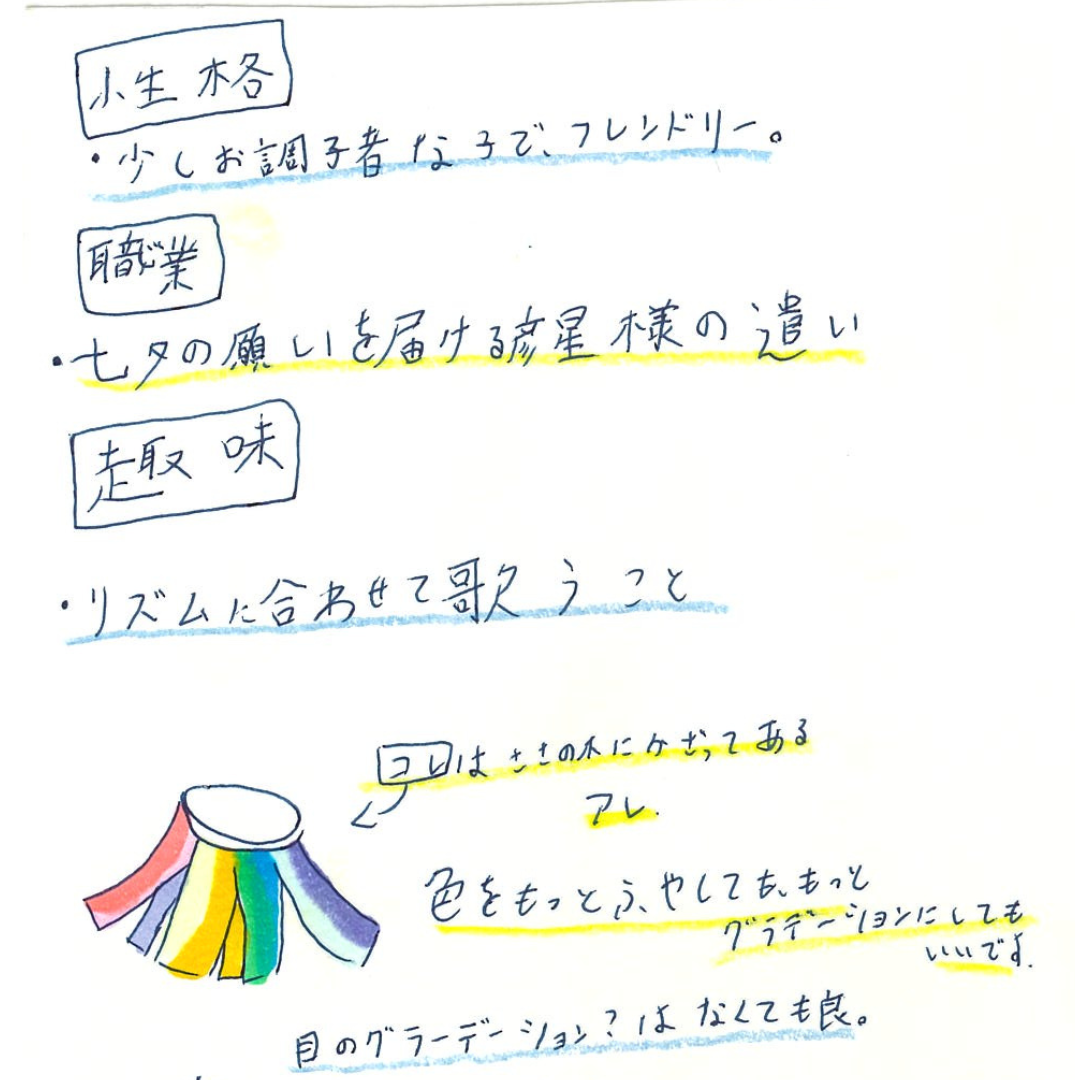 性格
・少しお調子者な子で、フレンドリー。
職業
・七夕の願いを届ける彦星様の遣い
趣味
・リズムに合わせて歌うこと
コレはささの木にかざってある
アレ.
色をもっとふやしても、もっと
グラデーションにしても
いいです.
目のグラーデーション?はなくても良。